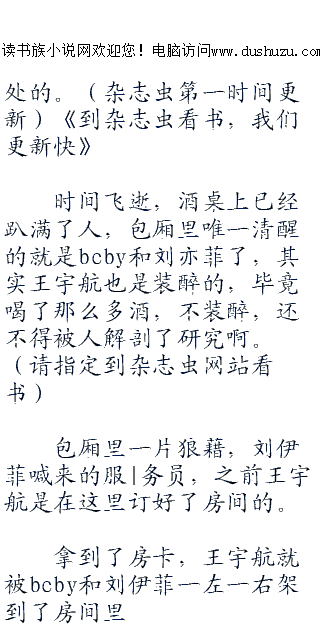 读书族小说网欢迎您！电脑访问www.dushuzu.com
处的。（杂志虫第一时间更
新）《到杂志虫看书，我们
更新快》
时间飞逝，酒桌上已经
趴满了人，包厢里唯一清醒
的就是bcby和刘亦菲了，其
实王宇航也是装醉的，毕竟
喝了那么多酒，不装醉，还
不得被人解剖了研究啊。
（请指定到杂志虫网站看
书）
包厢里一片狼藉，刘伊
菲喊来的服|务员，之前王宇
航是在这里订好了房间的。
拿到了房卡，王宇航就
被bcby和刘伊菲一左一右架
到了房间里